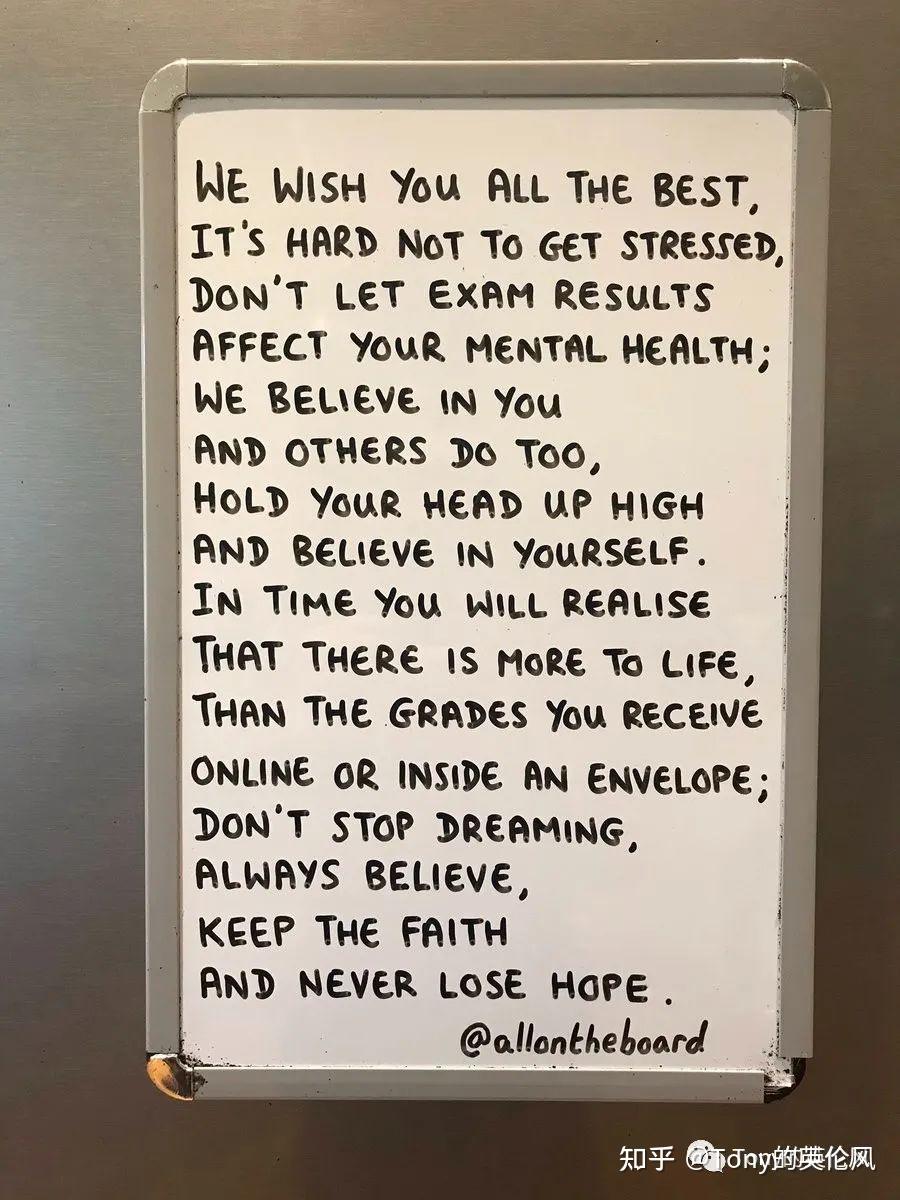 WE WISH YOU ALL THE BEST,
IT'S HARD NOT TO GET STRESSED,
DON'T LET EXAM RESULTS
AFFECT YOUR MENTAL HEALTH;
WE BELIEVE IN YOU
AND OTHERS DO TOO,
HOLD YOUR HEAD UP HIGH
AND BELIEVE IN YOURSELF.
IN TIME YOU WILL REALISE
THAT THERE IS MORE TO LIFE,
THAN THE GRADES YOU RECEIVE
ONLINE OR INSIDE AN ENVELOPE;
DON'T STOP DREAMING,
ALWAYS BELIEVE,
KEEP THE FAITH
AND NEVER LOSE HOPE.
@allontheboard
知乎 的英伦风